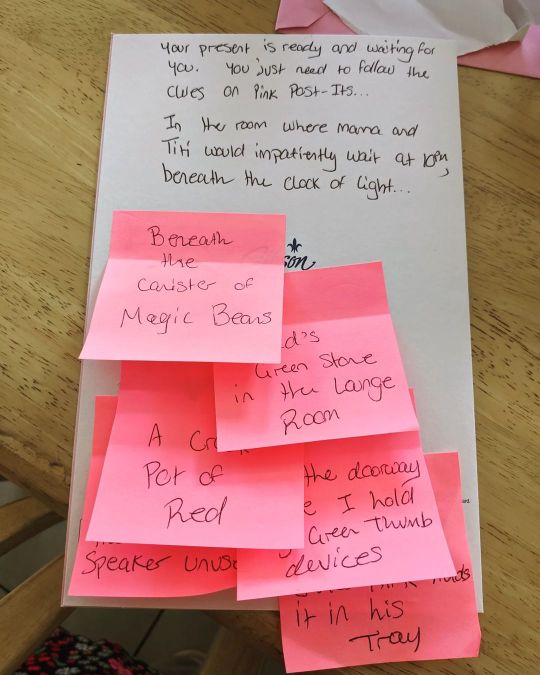 your present is ready and waiting for
you. You just need to follow the
clues on Pink Post-Its...
In the room where mama and
Titi would impatiently wait at 10pm,
beneath the clock of light...
Beneath
the
canister of
Magic Beans
Green Stone
in the Lounge
Room
A
Pot of
Red
the doorway
I hold
Green Thumb
devices
Speaker
it in his
Tray